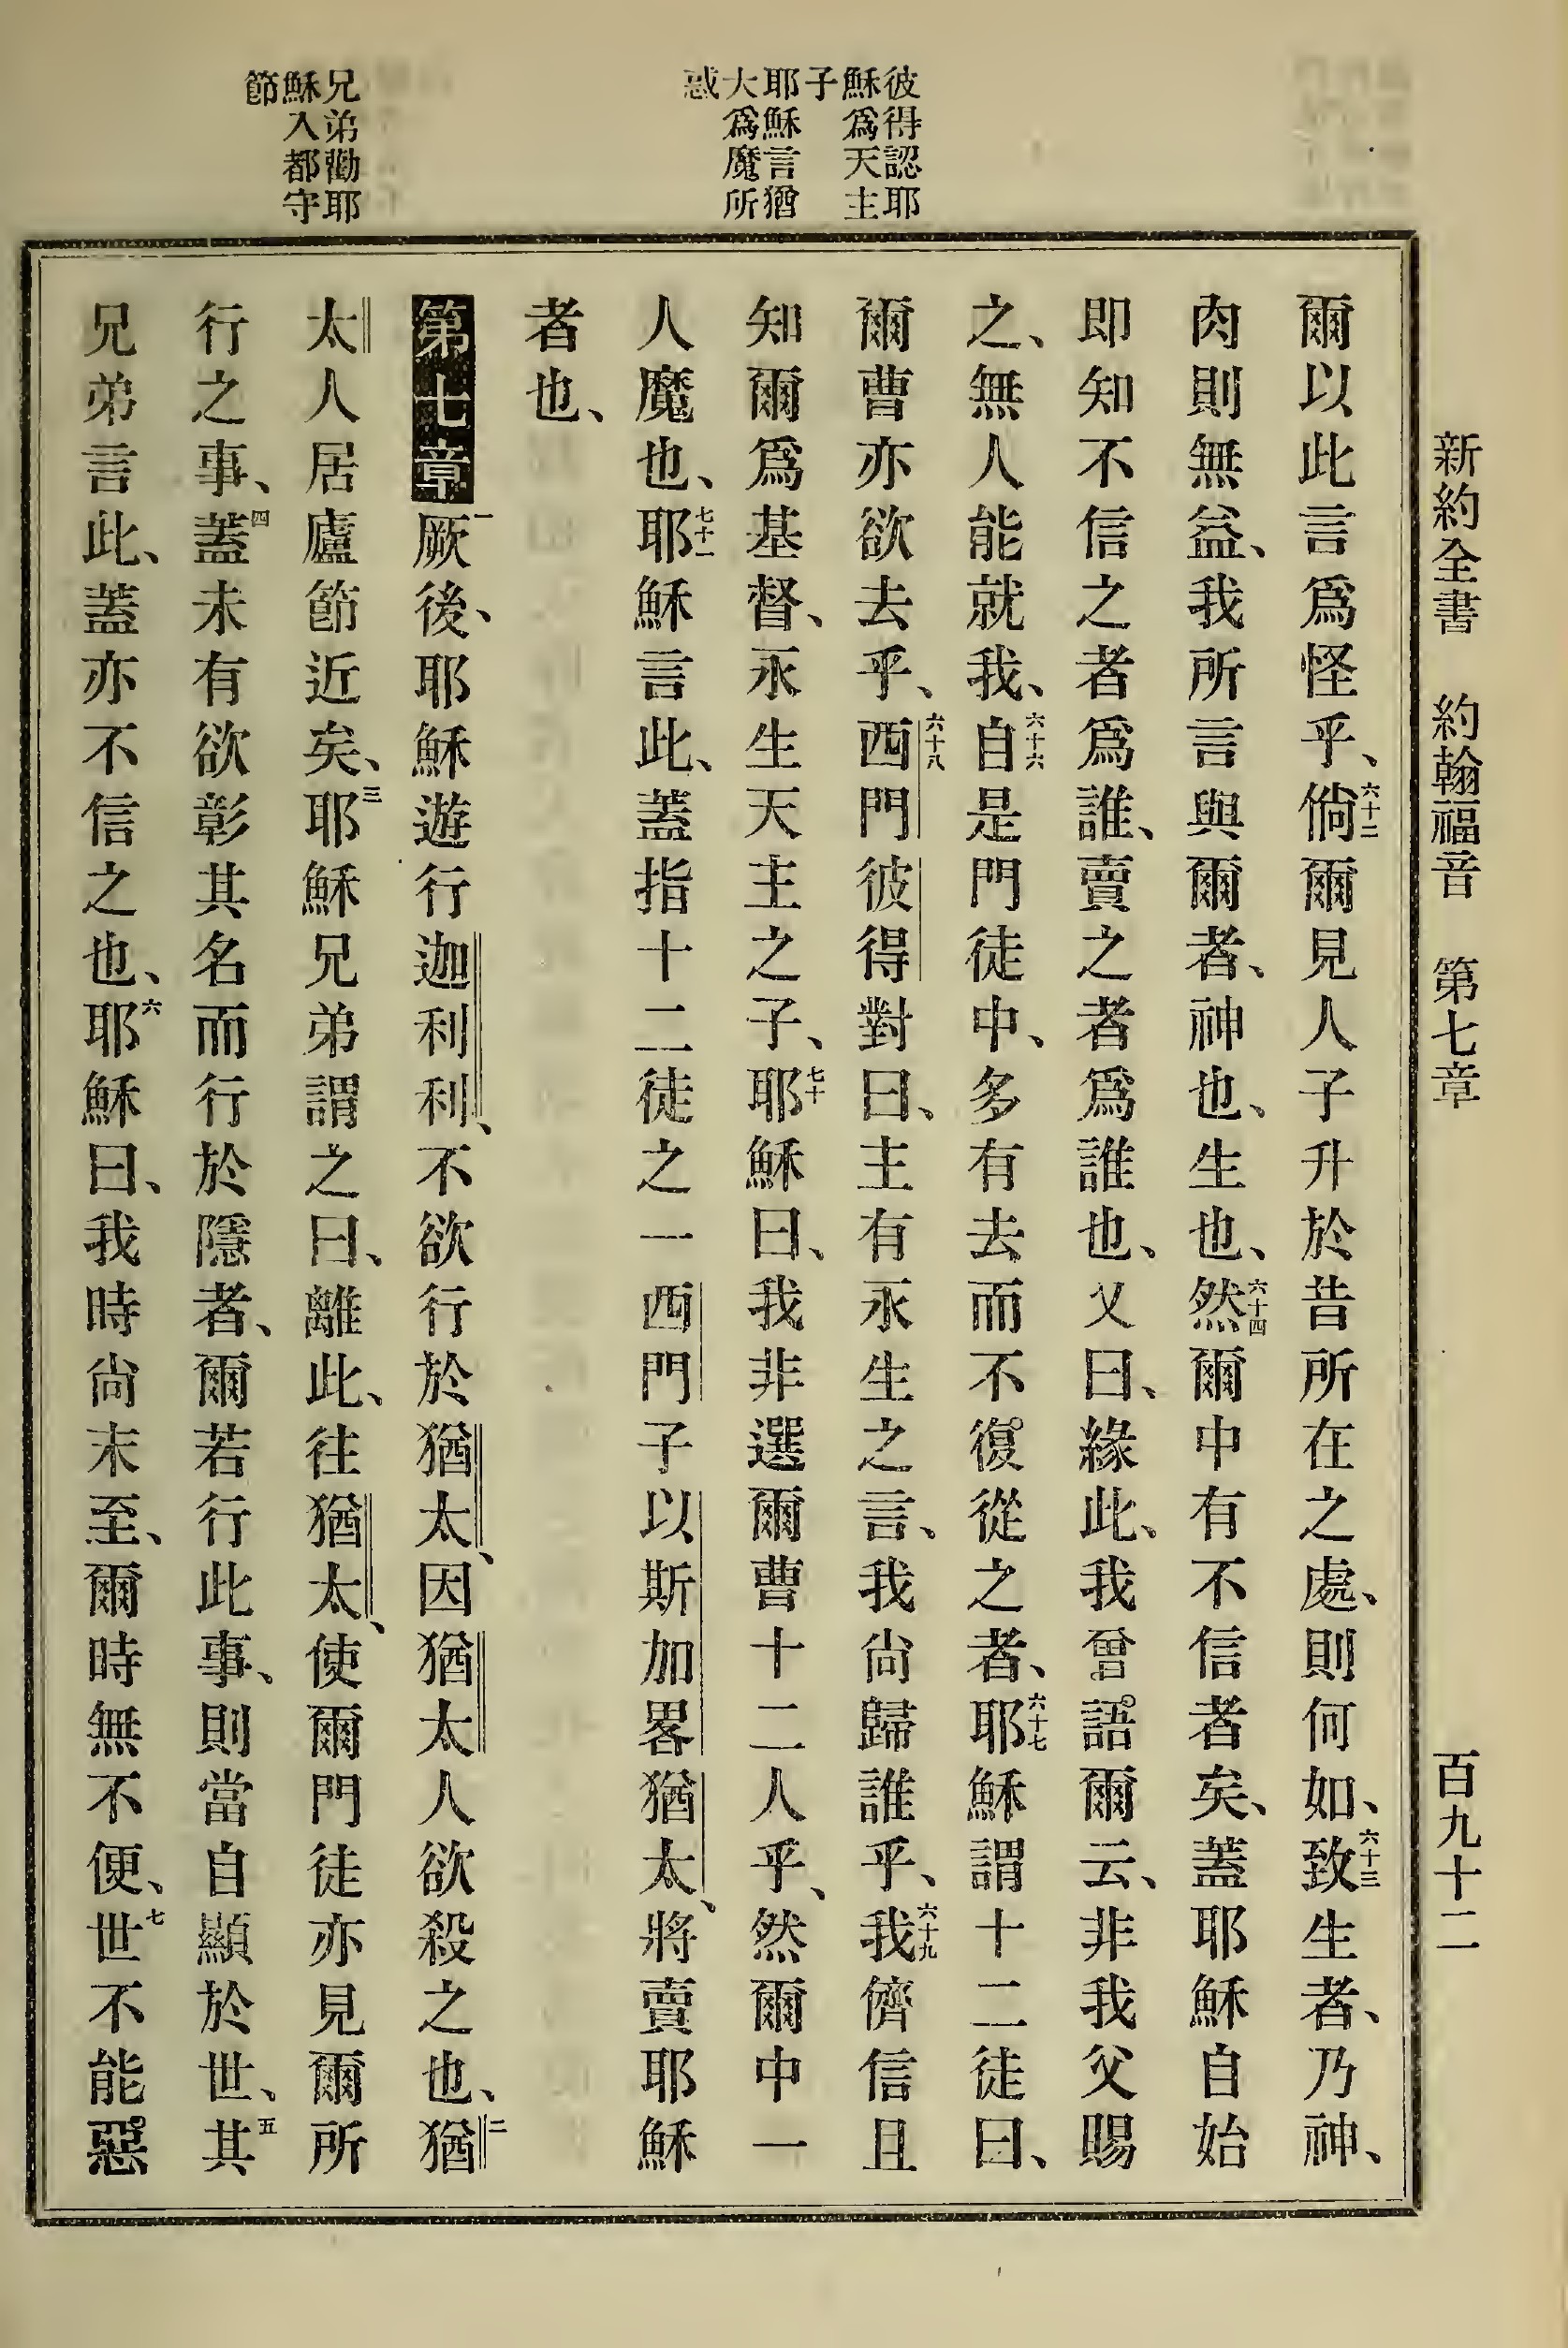 新約全書 約翰福音 第七章 百九十二
彼得認耶
穌爲天主
子
耶穌言猶
大爲魔所
惑
兄弟勸耶
穌入都守
節
爾以此言爲怪乎、六十二倘爾見人子升於昔所在之處、則何如、六十三致生者、乃神、
肉則無益、我所言與爾者、神也、生也、六十四然爾中有不信者矣、蓋耶穌自始
即知不信之者爲誰、賣之者爲誰也、又曰、緣此、我曾語爾云、非我父賜
之、無人能就我、六十六自是門徒中、多有去而不復從之者、六十七耶穌謂十二徒曰、
爾曹亦欲去乎、六十八西門彼得對曰、主有永生之言、我尙歸誰乎、六十九我儕信且
知爾爲基督、永生天主之子、七十耶穌曰、我非選爾曹十二人乎、然爾中一
人魔也、七十一耶穌言此、蓋指十二徒之一西門子以斯加畧猶太、將賣耶穌
者也、
第七章一厥後、耶穌遊行迦利利、不欲行於猶太、因猶太人欲殺之也、二猶
太人居廬節近矣、三耶穌兄弟謂之曰、離此、往猶太、使爾門徒亦見爾所
行之事、四蓋未有欲彰其名而行於隱者、爾若行此事、則當自顯於世、五其
兄弟言此、蓋亦不信之也、六耶穌曰、我時尙未至、爾時無不便、七世不能惡